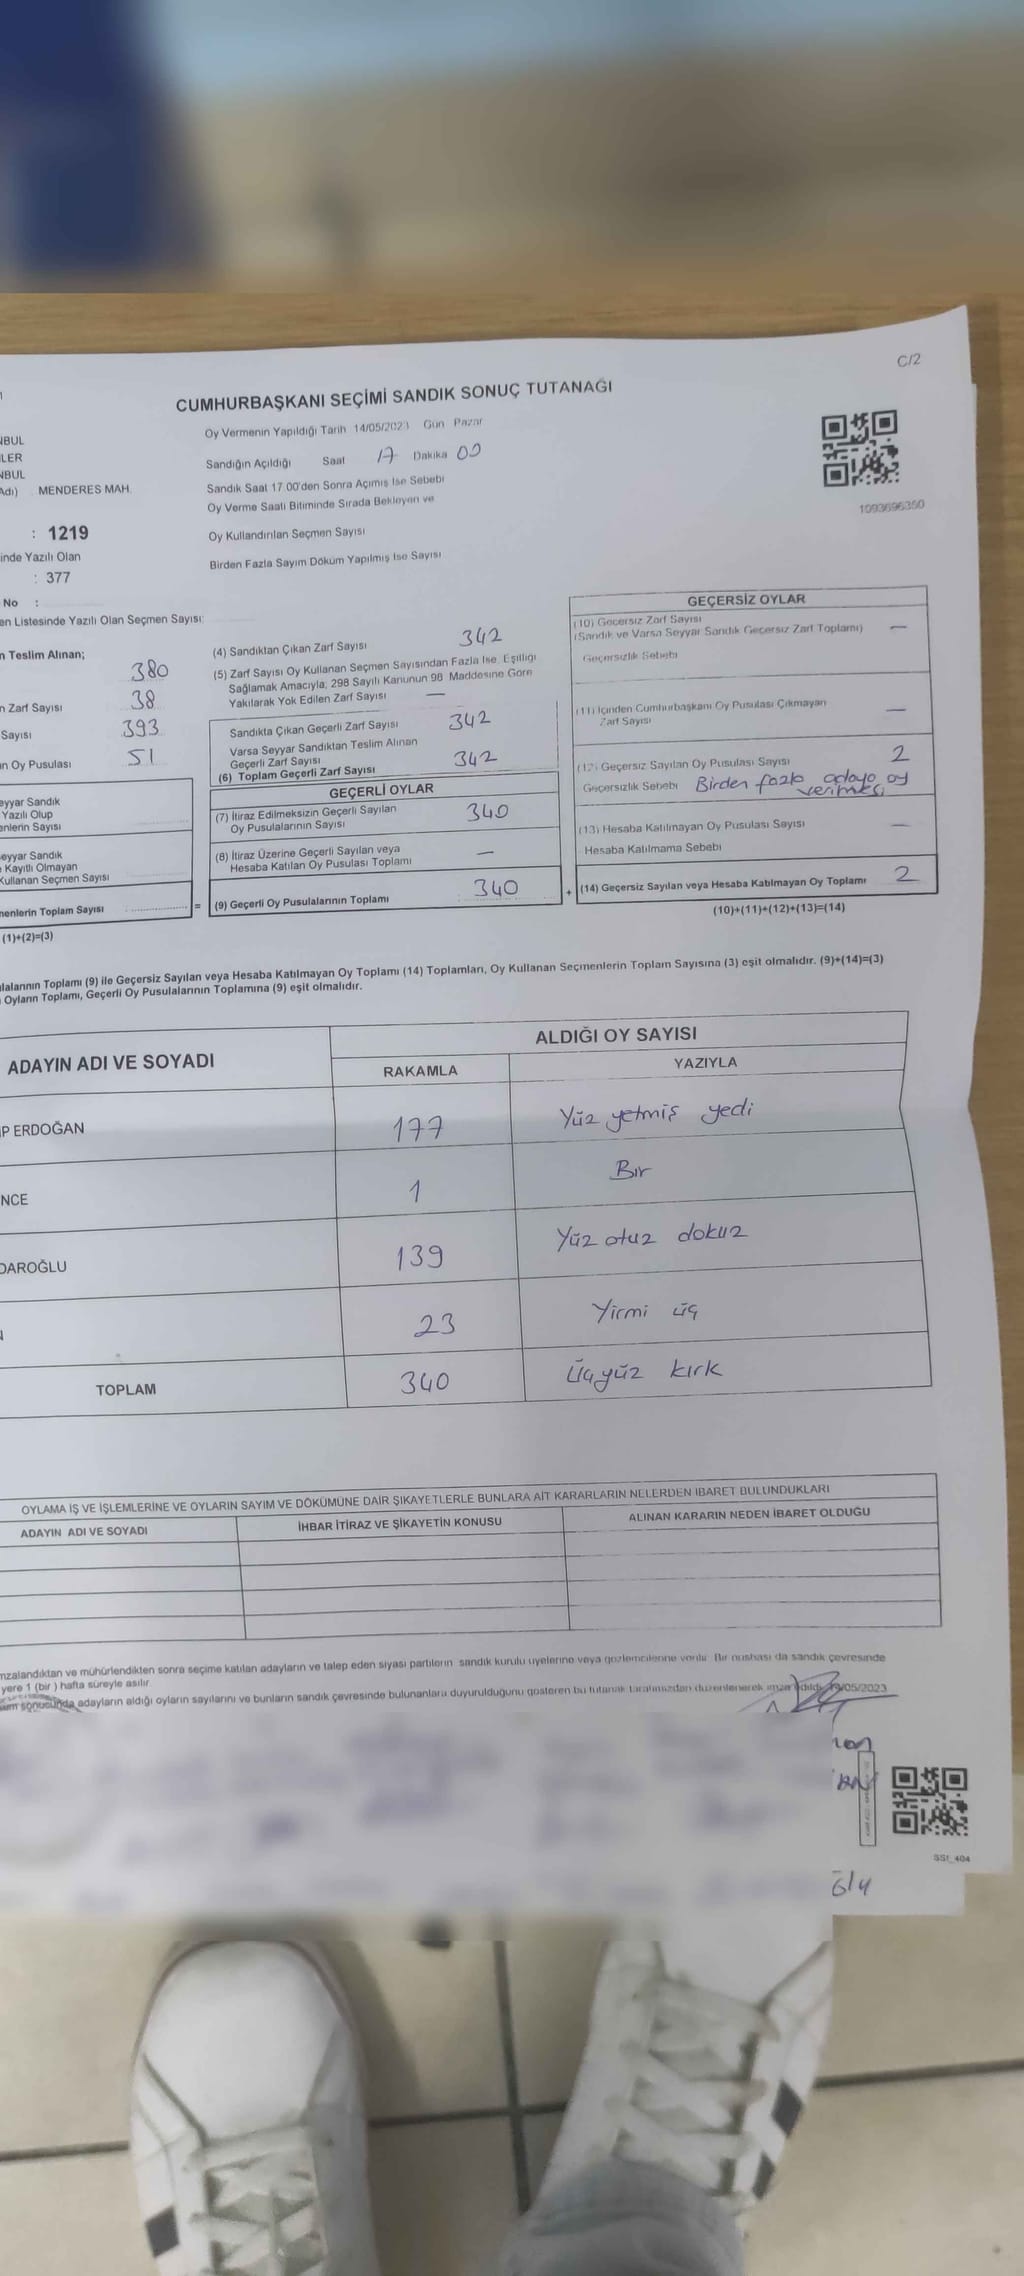 C/2
CUMHURBAŞKANI SEÇİMİ SANDIK SONUÇ TUTANAĞI
NBUL
Oy Vermenin Yapıldığı Tarih 14/05/2023 Gün Pazar
LER
Sandığın Açıldığı Saat 17 Dakika 00
NBUL
Adı) MENDERES MAH.
Sandık Saat 17.00'den Sonra Açımış İse Sebebi
Oy Verme Saati Bitiminde Sırada Bekleyen ve
1093696350
: 1219
Oy Kullandırılan Seçmen Sayısı
inde Yazılı Olan
Birden Fazla Sayım Döküm Yapılmış İse Sayısı
: 377
No :
en Listesinde Yazılı Olan Seçmen Sayısı:
n Teslim Alınan;
380
n Zarf Sayısı 38
Sayısı 393
n Oy Pusulası 51
eyyar Sandık
Yazılı Olup
enlerin Sayısı
eyyar Sandık
Kayıtlı Olmayan
Kullanan Seçmen Sayısı
menlerin Toplam Sayısı =
(1)+(2)=(3)
(4) Sandıktan Çıkan Zarf Sayısı 342
(5) Zarf Sayısı Oy Kullanan Seçmen Sayısından Fazla İse, Eşitliği
Sağlamak Amacıyla, 298 Sayılı Kanunun 98. Maddesine Göre
Yakılarak Yok Edilen Zarf Sayısı —
Sandıkta Çıkan Geçerli Zarf Sayısı 342
Varsa Seyyar Sandıktan Teslim Alınan
Geçerli Zarf Sayısı
(6) Toplam Geçerli Zarf Sayısı 342
GEÇERLİ OYLAR
(7) İtiraz Edilmeksizin Geçerli Sayılan
Oy Pusulalarının Sayısı 340
(8) İtiraz Üzerine Geçerli Sayılan veya
Hesaba Katılan Oy Pusulası Toplamı —
(9) Geçerli Oy Pusulalarının Toplamı 340
+
GEÇERSİZ OYLAR
(10) Geçersiz Zarf Sayısı
(Sandık ve Varsa Seyyar Sandık Geçersiz Zarf Toplamı) —
Geçersizlik Sebebi
(11) İçinden Cumhurbaşkanı Oy Pusulası Çıkmayan
Zarf Sayısı —
(12) Geçersiz Sayılan Oy Pusulası Sayısı 2
Geçersizlik Sebebi Birden fazla adaya oy
verilmesi
(13) Hesaba Katılmayan Oy Pusulası Sayısı —
Hesaba Katılmama Sebebi
(14) Geçersiz Sayılan veya Hesaba Katılmayan Oy Toplamı 2
(10)+(11)+(12)+(13)=(14)
ılalarının Toplamı (9) ile Geçersiz Sayılan veya Hesaba Katılmayan Oy Toplamı (14) Toplamları, Oy Kullanan Seçmenlerin Toplam Sayısına (3) eşit olmalıdır. (9)+(14)=(3)
Oyların Toplamı, Geçerli Oy Pusulalarının Toplamına (9) eşit olmalıdır.
ADAYIN ADI VE SOYADI
ALDIĞI OY SAYISI
RAKAMLA YAZIYLA
P ERDOĞAN 177 Yüz yetmiş yedi
NCE 1 Bir
DAROĞLU 139 Yüz otuz dokuz
23 Yirmi üç
TOPLAM 340 Üçyüz kırk
OYLAMA İŞ VE İŞLEMLERİNE VE OYLARIN SAYIM VE DÖKÜMÜNE DAİR ŞİKAYETLERLE BUNLARA AİT KARARLARIN NELERDEN İBARET BULUNDUKLARI
ADAYIN ADI VE SOYADI İHBAR İTİRAZ VE ŞİKAYETİN KONUSU ALINAN KARARIN NEDEN İBARET OLDUĞU
mzalandıktan ve mühürlendikten sonra seçime katılan adayların ve talep eden siyasi partilerin sandık kurulu üyelerine veya gözlemcilerine verilir. Bir nüshası da sandık çevresinde
yere 1 (bir ) hafta süreyle asılır.
sonucunda adayların aldığı oyların sayılarını ve bunların sandık çevresinde bulunanlara duyurulduğunu gösteren bu tutanak tarafımızdan düzenlenerek /05/2023
SSI_404